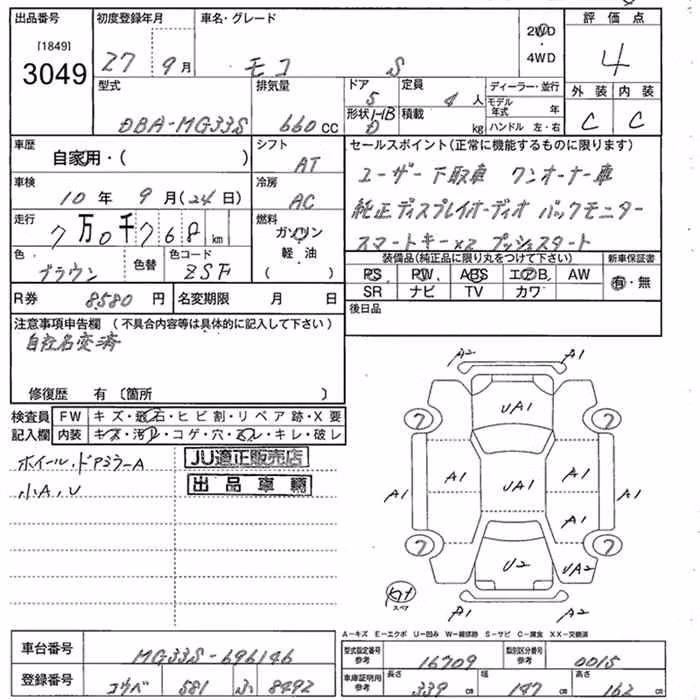 出品番号 初度登録年月 車名・グレード 評価点
[1849]
3049 27 9月 モコ S 2WD ・ 4WD 4
型式 排気量 ドア 定員 ディーラー・並行 外装 内装
DBA-MG33S 660cc 5 4人 モデル年式 年 C C
形状 HB 積載 kg ハンドル 左・右
車歴 シフト セールスポイント(正常に機能するものに限ります)
自家用・( ) AT ユーザー下取車 ワンオーナー車
車検 冷房
10年9月(24日) AC 純正ディスプレイオーディオ バックモニター
走行 燃料
7万0千768km ガソリン スマートキー×2 プッシュスタート
軽油
( )
色 色替 色コード 装備品(純正品に限り丸をつけて下さい) 新車保証書
ブラウン ZSF PS PW ABS エアB AW 有・無
SR ナビ TV カワ
R券 8580円 名変期限 月 日 後日品
注意事項申告欄(不具合内容等は具体的に記入して下さい)
自社名変済
修復歴 有〔箇所 〕
検査員 FW キズ・飛石・ヒビ割・リペア跡・X要
記入欄 内装 キズ・汚レ・コゲ・穴・スレ・キレ・破レ
ホイール・ドアミラーA JU適正販売店
小A,U 出品車輌
A2 A1
UA1
7 7
A1 A1 UA1 A1 A1
A1
7 7
U2 UA2
スペア
A1 A2
A-キズ E-エクボ U-凹み W-補修跡 S-サビ C-腐食 XX-交換済
車台番号 MG33S-696146 型式指定番号 参考 16709 類別区分番号 参考 0015
登録番号 コウベ 581 ふ 8492 車庫証明用 参考 長さ 339cm 幅 147cm 高さ 162cm